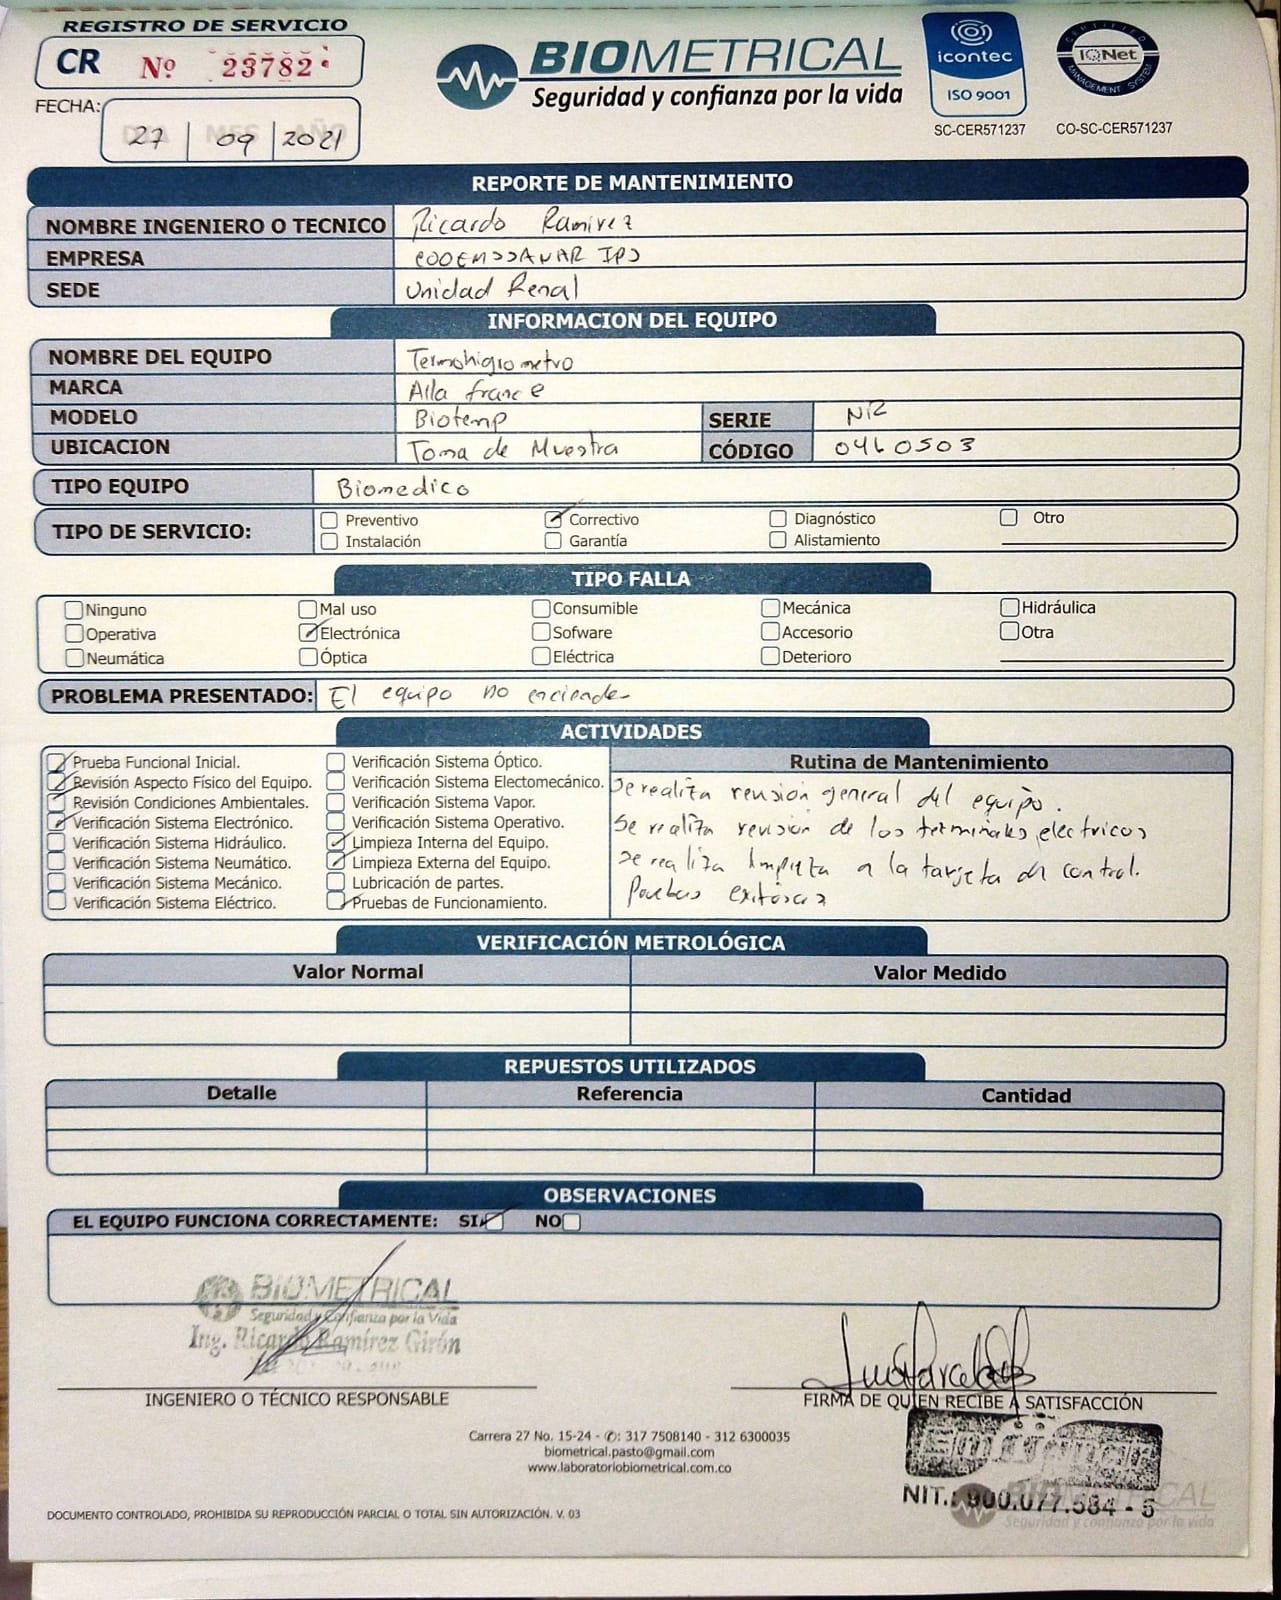 REGISTRO DE SERVICIO
CR Nº 23782
FECHA: 27 | 09 | 2021
BIOMETRICAL
Seguridad y confianza por la vida
icontec
ISO 9001
SC-CER571237
CERTIFIED
IQNet
MANAGEMENT SYSTEM
CO-SC-CER571237
REPORTE DE MANTENIMIENTO
NOMBRE INGENIERO O TECNICO Ricardo Ramirez
EMPRESA IPS
SEDE Unidad Renal
INFORMACION DEL EQUIPO
NOMBRE DEL EQUIPO Termohigrometro
MARCA Alla france
MODELO Biotemp SERIE NR
UBICACION Toma de Muestra CÓDIGO 0460503
TIPO EQUIPO Biomedico
TIPO DE SERVICIO: Preventivo Correctivo Diagnóstico Otro
Instalación Garantía Alistamiento
TIPO FALLA
Ninguno Mal uso Consumible Mecánica Hidráulica
Operativa Electrónica Sofware Accesorio Otra
Neumática Óptica Eléctrica Deterioro
PROBLEMA PRESENTADO: El equipo no enciende
ACTIVIDADES
Prueba Funcional Inicial.
Revisión Aspecto Físico del Equipo.
Revisión Condiciones Ambientales.
Verificación Sistema Electrónico.
Verificación Sistema Hidráulico.
Verificación Sistema Neumático.
Verificación Sistema Mecánico.
Verificación Sistema Eléctrico.
Verificación Sistema Óptico.
Verificación Sistema Electomecánico.
Verificación Sistema Vapor.
Verificación Sistema Operativo.
Limpieza Interna del Equipo.
Limpieza Externa del Equipo.
Lubricación de partes.
Pruebas de Funcionamiento.
Rutina de Mantenimiento
Se realiza revision general del equipo.
Se realiza revision de los terminales electricos
se realiza limpieza a la tarjeta de control.
Pruebas exitosas
VERIFICACIÓN METROLÓGICA
Valor Normal Valor Medido
REPUESTOS UTILIZADOS
Detalle Referencia Cantidad
OBSERVACIONES
EL EQUIPO FUNCIONA CORRECTAMENTE: SI NO
BIOMETRICAL
Seguridad y Confianza por la Vida
Ing. Ricardo Ramírez Girón
INGENIERO O TÉCNICO RESPONSABLE
FIRMA DE QUIEN RECIBE A SATISFACCIÓN
Carrera 27 No. 15-24 - ✆: 317 7508140 - 312 6300035
biometrical.pasto@gmail.com
www.laboratoriobiometrical.com.co
NIT.: 900.077.584 - 5
BIOMETRICAL
Seguridad y confianza por la vida
DOCUMENTO CONTROLADO, PROHIBIDA SU REPRODUCCIÓN PARCIAL O TOTAL SIN AUTORIZACIÓN. V. 03